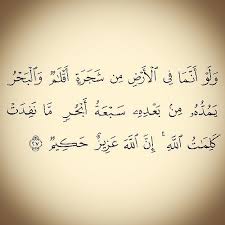 وَلَوْ أَنَّمَا فِى ٱلْأَرْضِ مِن شَجَرَةٍ أَقْلَٰمٌ وَٱلْبَحْرُ
يَمُدُّهُۥ مِنۢ بَعْدِهِۦ سَبْعَةُ أَبْحُرٍ مَّا نَفِدَتْ
كَلِمَٰتُ ٱللَّهِ ۗ إِنَّ ٱللَّهَ عَزِيزٌ حَكِيمٌ ۝٢٧